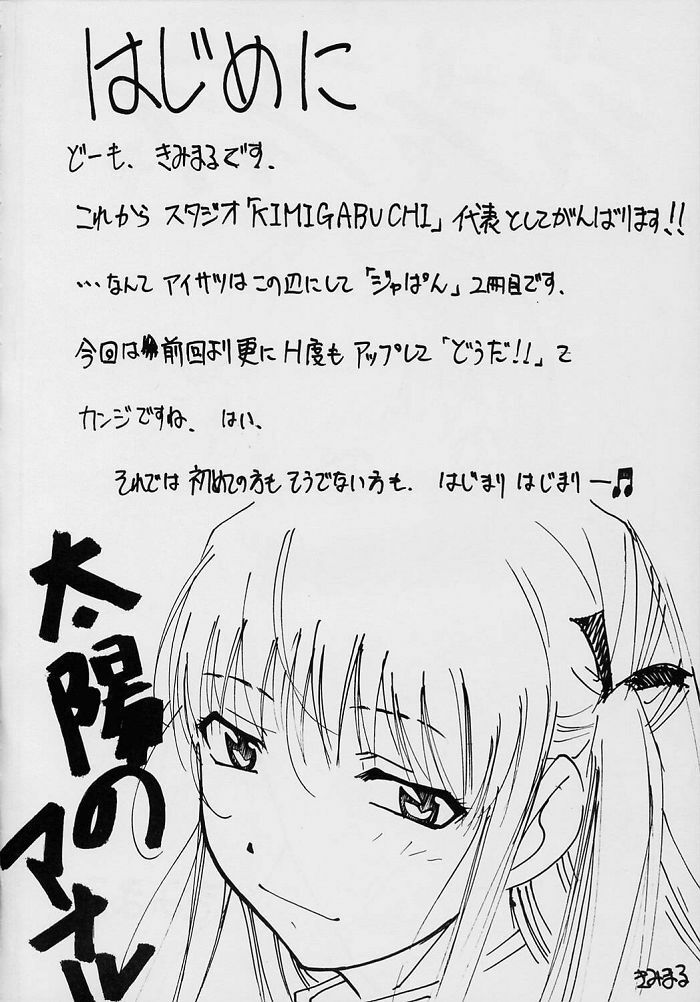 はじめに
どーも、きみまるです。
これから スタジオ「KIMIGABUCHI」代表としてがんばります!!
…なんて アイサツはこの辺にして「ジャぱん」2冊目です。
今回は前回より更に H度も アップして「どうだ!!」て
カンジですね、はい、
それでは 初めての方も そうでない方も、はじまり はじまりー♫
太陽の
マナル
きみまる